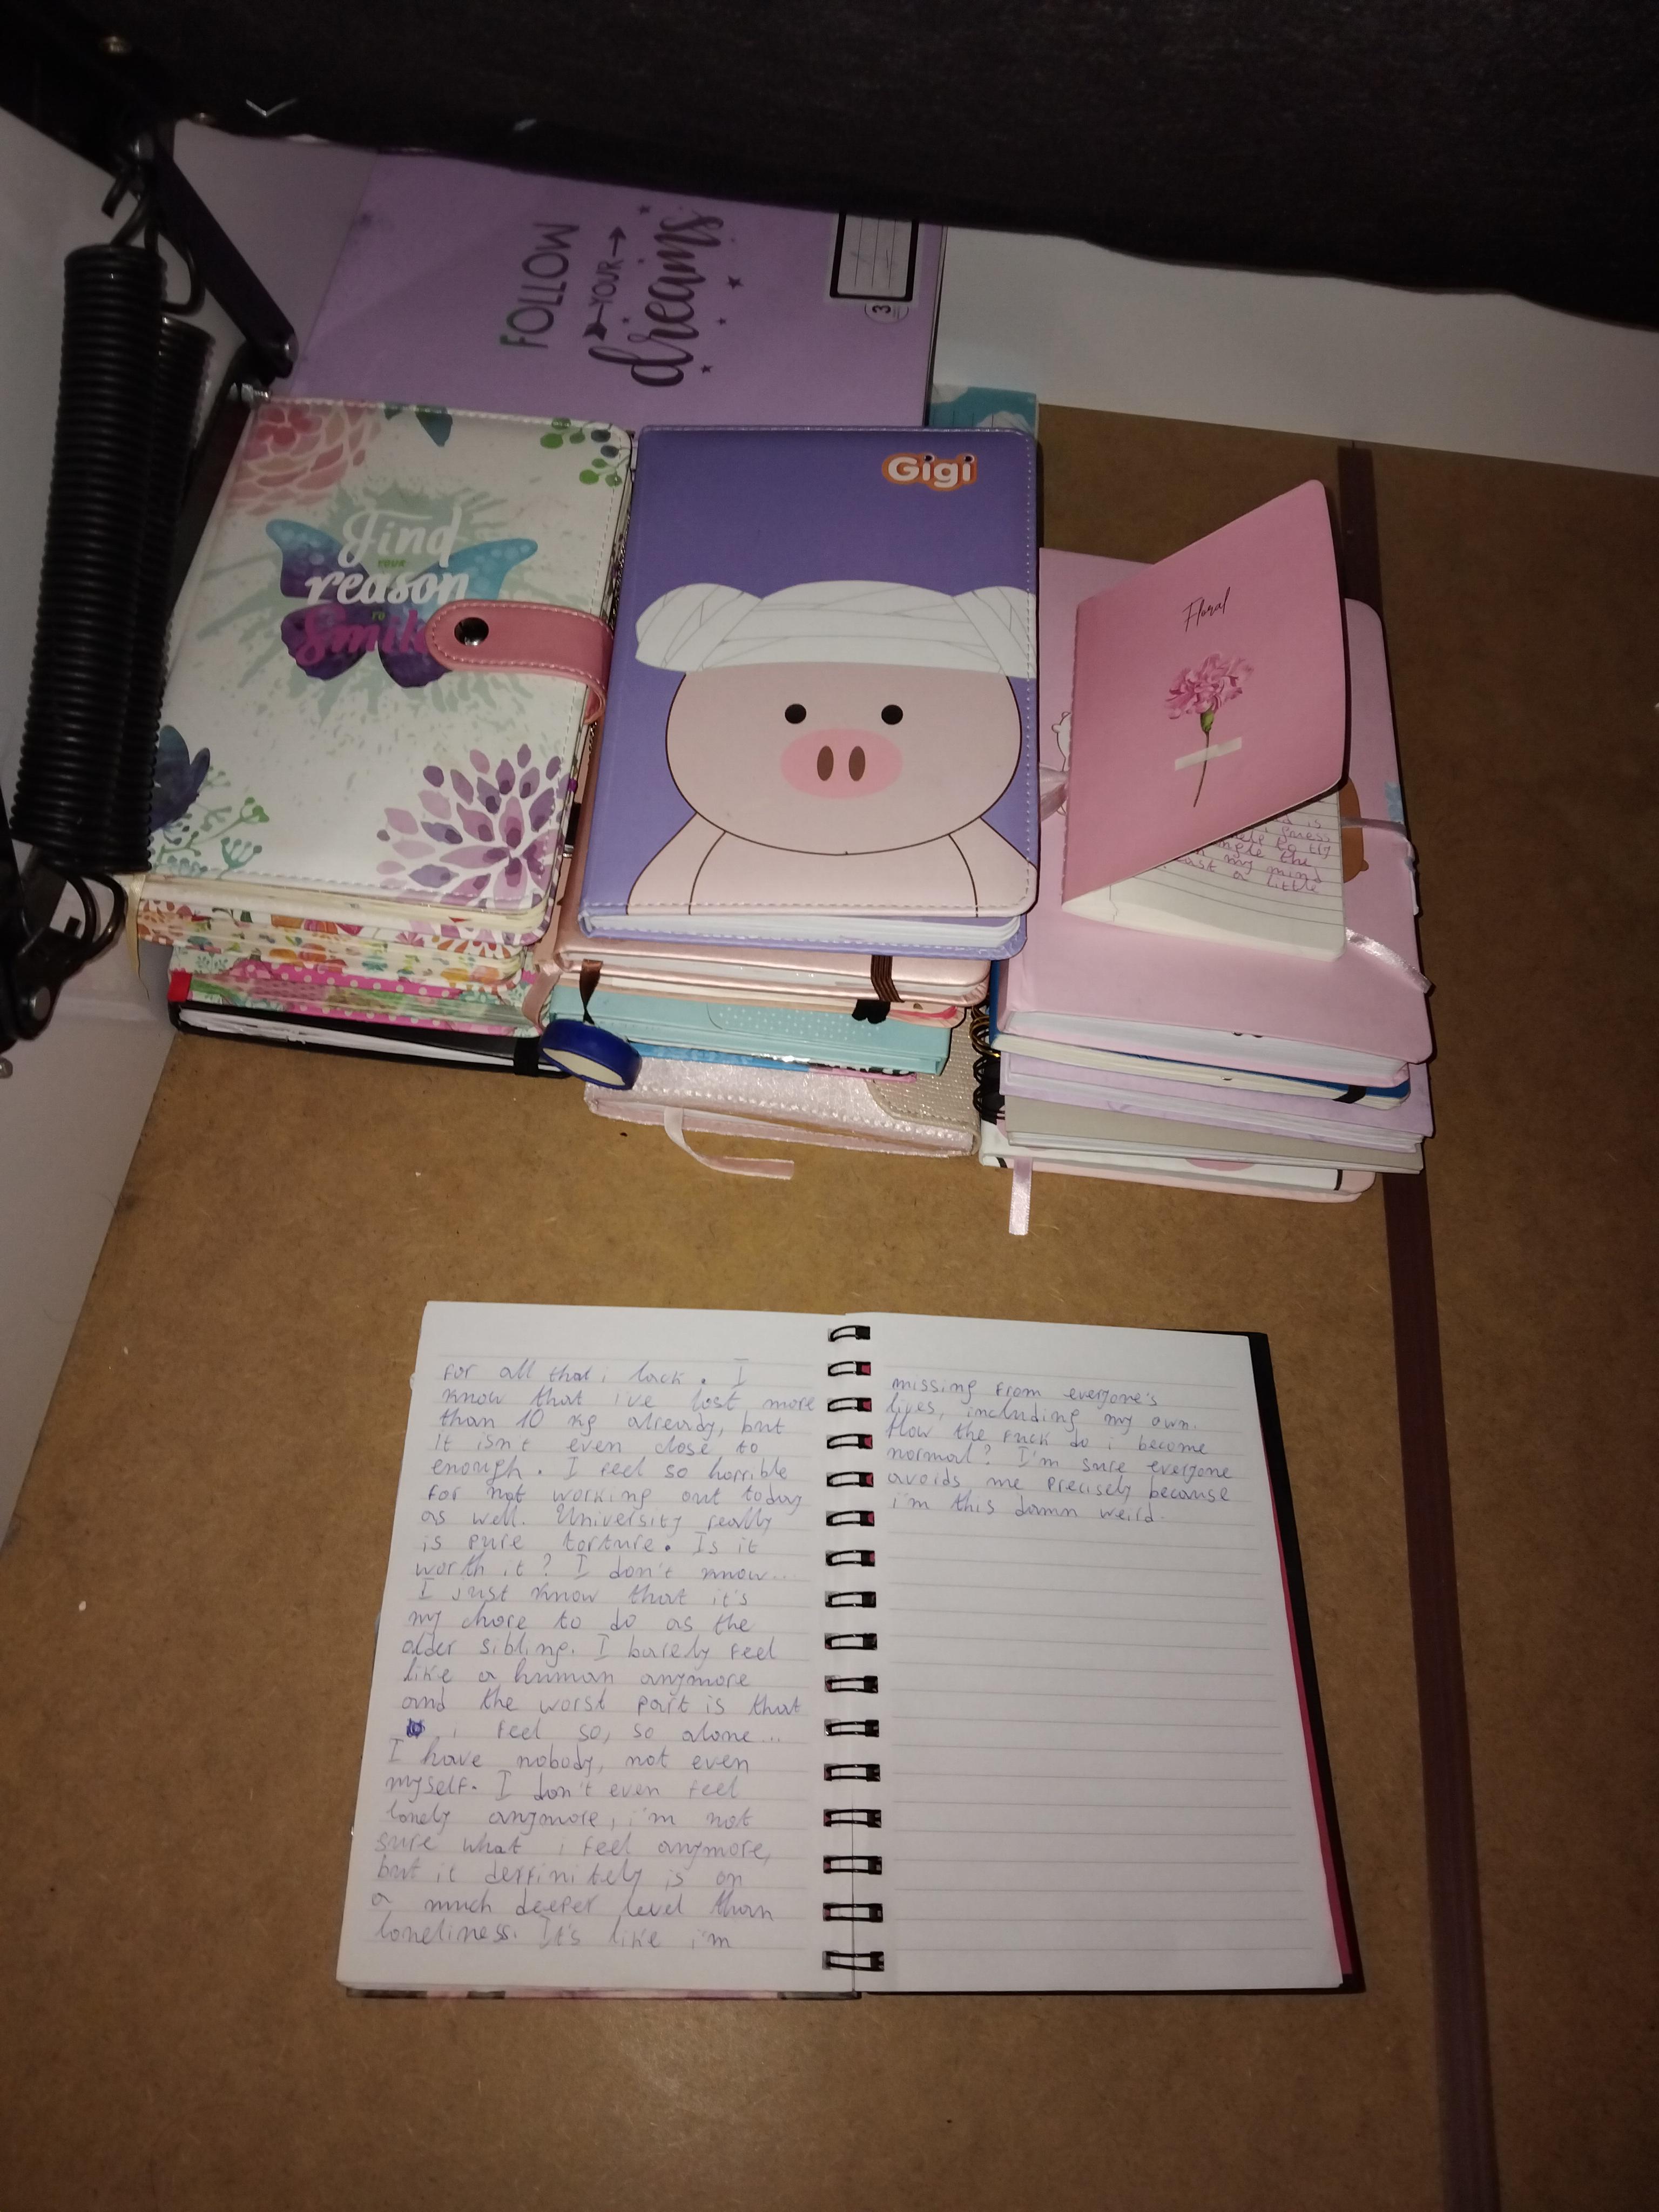 FOLLOW
YOUR
dreams
3
Find
YOUR
reason
TO
Smile
Gigi
Floral
is
my mind
a little
for all that i lack. I
know that i've lost more
than 10 kg already, but
it isn't even close to
enough. I feel so horrible
for not working out today
as well. University really
is pure torture. Is it
worth it? I don't know...
I just know that it's
my chore to do as the
older sibling. I barely feel
like a human anymore
and the worst part is that
i feel so, so alone...
I have nobody, not even
myself. I don't even feel
lonely anymore, i'm not
sure what i feel anymore,
but it deffinitely is on
a much deeper level than
loneliness. It's like i'm
missing from everyone's
lives, including my own.
How the fuck do i become
normal? I'm sure everyone
avoids me precisely because
i'm this damn weird.